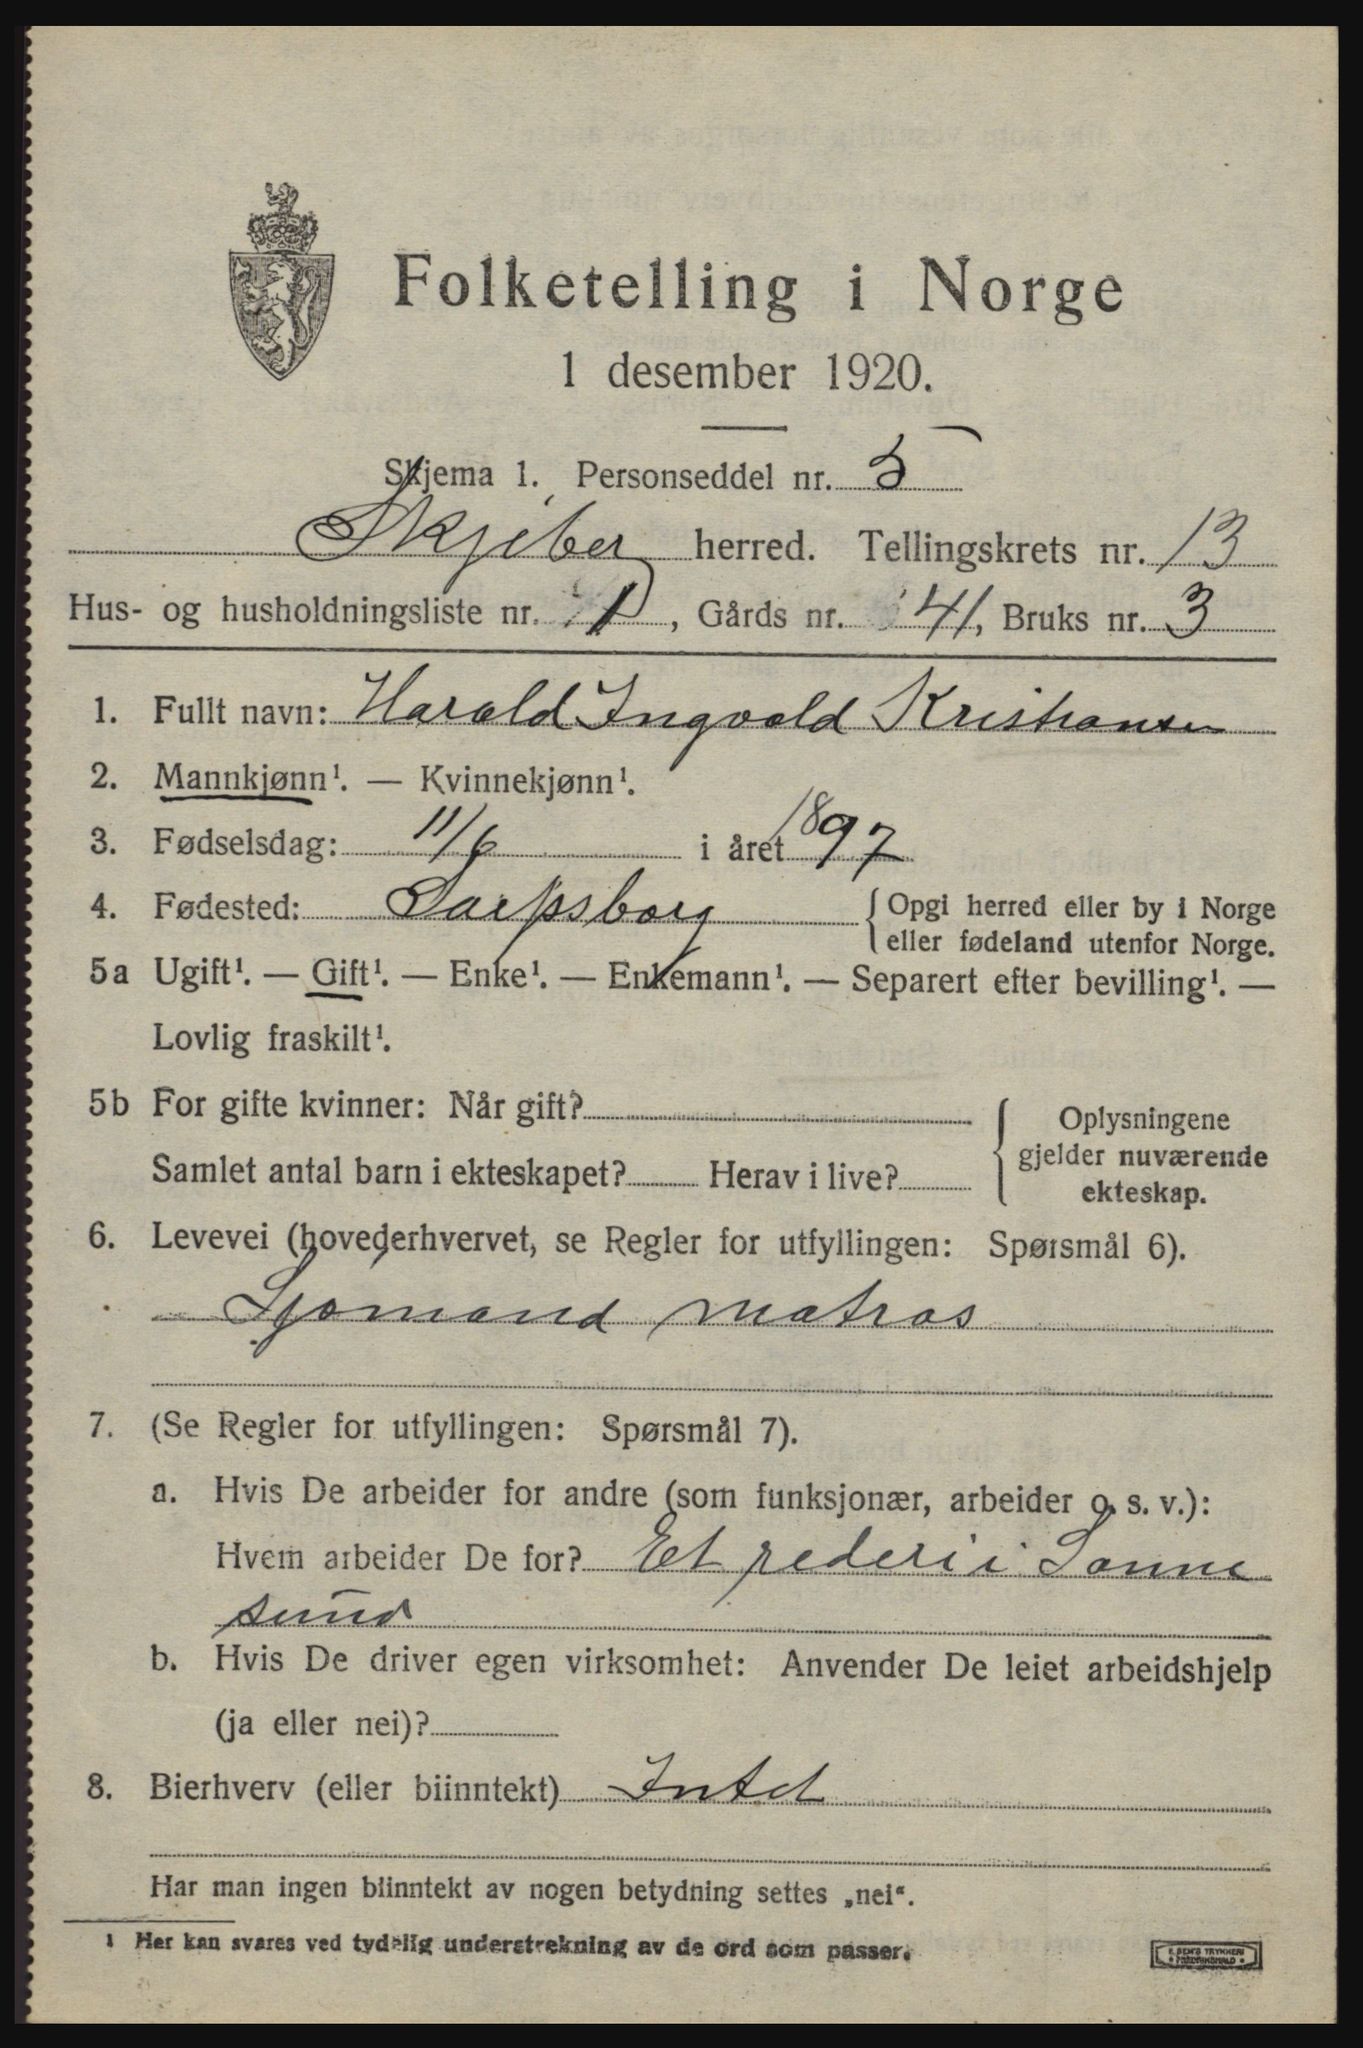 Folketelling i Norge
1 desember 1920.
Skjema 1. Personseddel nr. 5
Skjeber herred. Tellingskrets nr. 13
Hus- og husholdningsliste nr. 1, Gårds nr. 41, Bruks nr. 3
1. Fullt navn: Harald Ingvald Kristiansen
2. Mannkjønn¹. — Kvinnekjønn¹.
3. Fødselsdag: 11/6 i året 1897
4. Fødested: Sarpsborg { Opgi herred eller by i Norge
eller fødeland utenfor Norge.
5a Ugift¹. — Gift¹. — Enke¹. — Enkemann¹. — Separert efter bevilling¹. —
Lovlig fraskilt¹.
5b For gifte kvinner: Når gift?
Samlet antal barn i ekteskapet? Herav i live?
{ Oplysningene
gjelder nuværende
ekteskap.
6. Levevei (hovederhvervet, se Regler for utfyllingen: Spørsmål 6).
Sjømand matros
7. (Se Regler for utfyllingen: Spørsmål 7).
a. Hvis De arbeider for andre (som funksjonær, arbeider o. s. v.):
Hvem arbeider De for? Et rederi i Sanne
sund
b. Hvis De driver egen virksomhet: Anvender De leiet arbeidshjelp
(ja eller nei)?
8. Bierhverv (eller biinntekt) Intet
Har man ingen biinntekt av nogen betydning settes „nei“.
¹ Her kan svares ved tydelig understrekning av de ord som passer.
TRYKKERI
FREDRIKSHALD